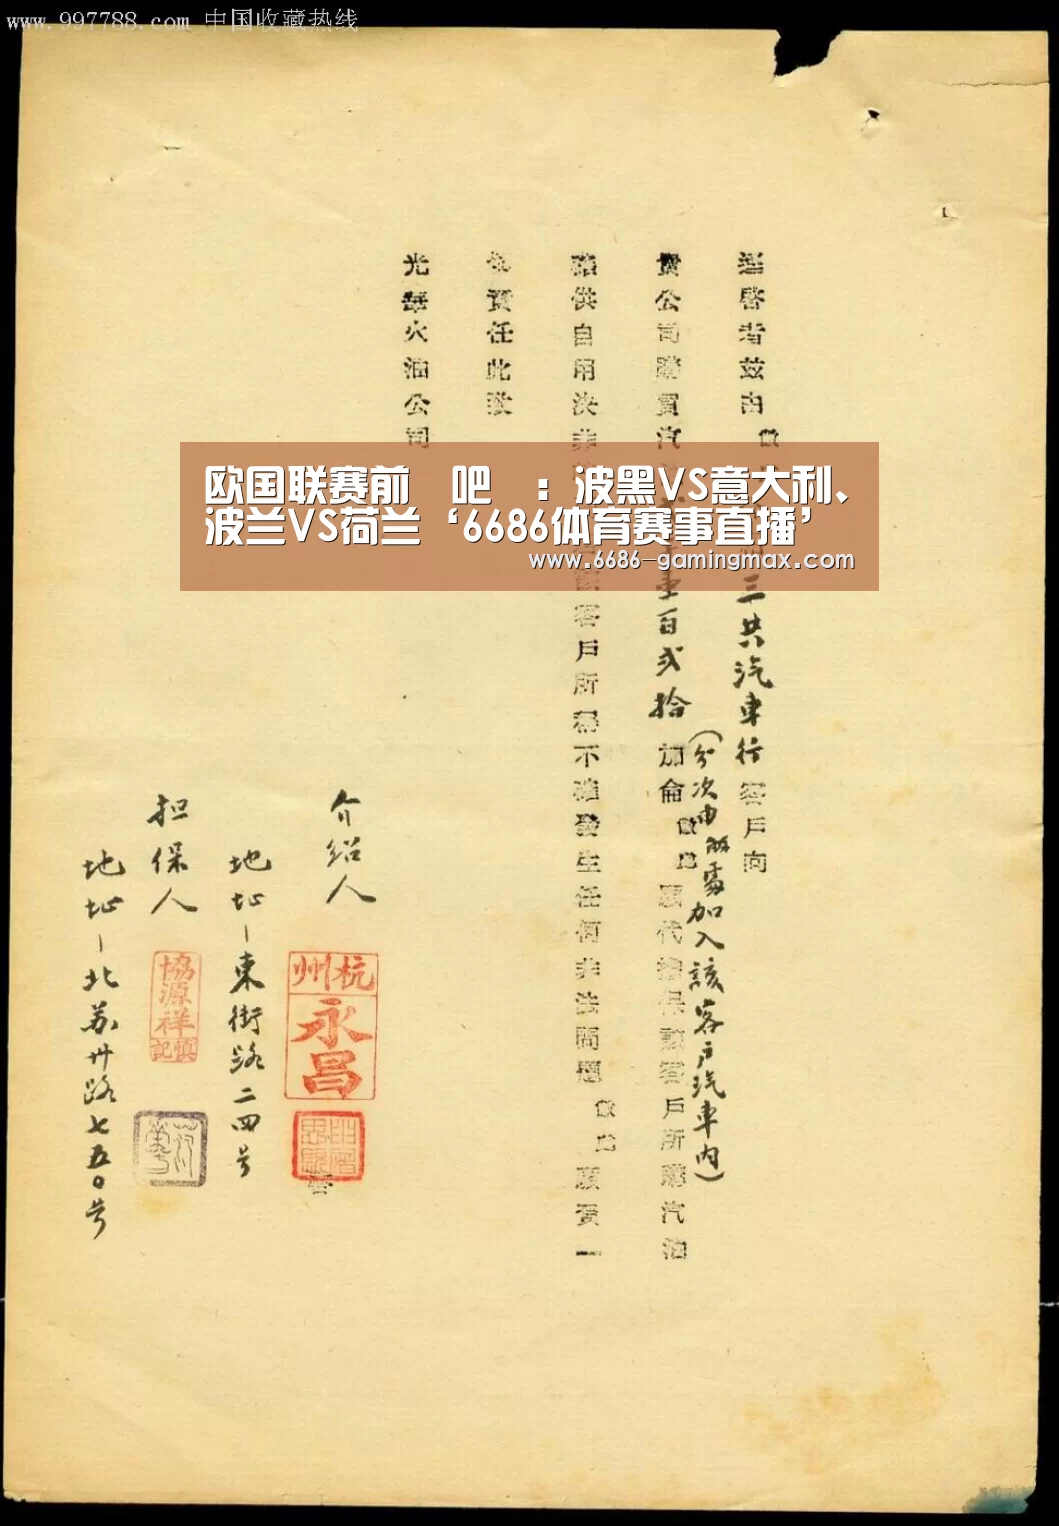 www.997788.com 中国收藏热线
欧国联赛前 吧 ：波黑VS意大利、
波兰VS荷兰‘6686体育赛事直播’
www.6686-gamingmax.com
逕啓者茲由敝
三共汽車行客戶向
(分次由 處加入該客戶汽車內)
貴公司購買汽
壹百弍拾加侖敝處願代擔保該客戶所購汽油
確供自用決非
客戶所 不確發生任何非法問題敝處願負一
責任此致
光華火油公司
介紹人
杭州
永昌
地址－東街路二四号
担保人
協源祥
慎記
地址－北苏州路七五〇号